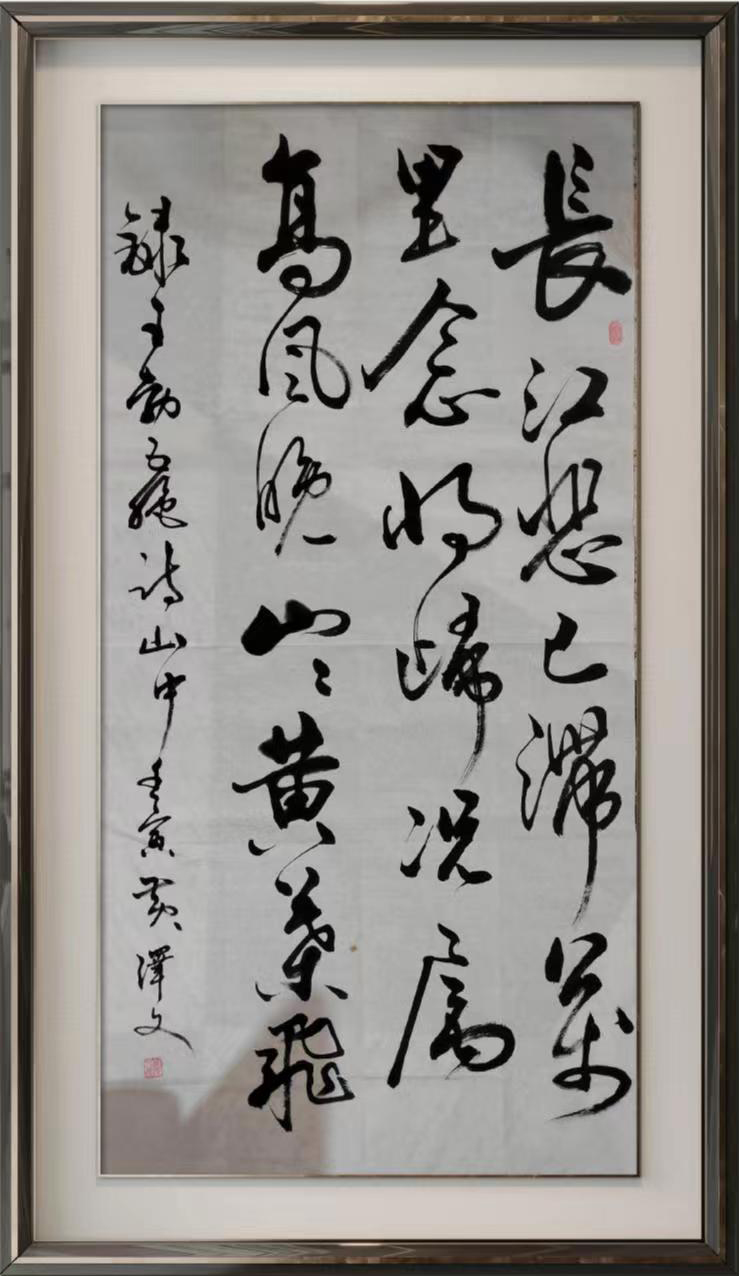 長江悲已滯萬
里念將歸況屬
高風晚山〻黃葉飛
錄王勃五绝诗山中壬寅黃澤文